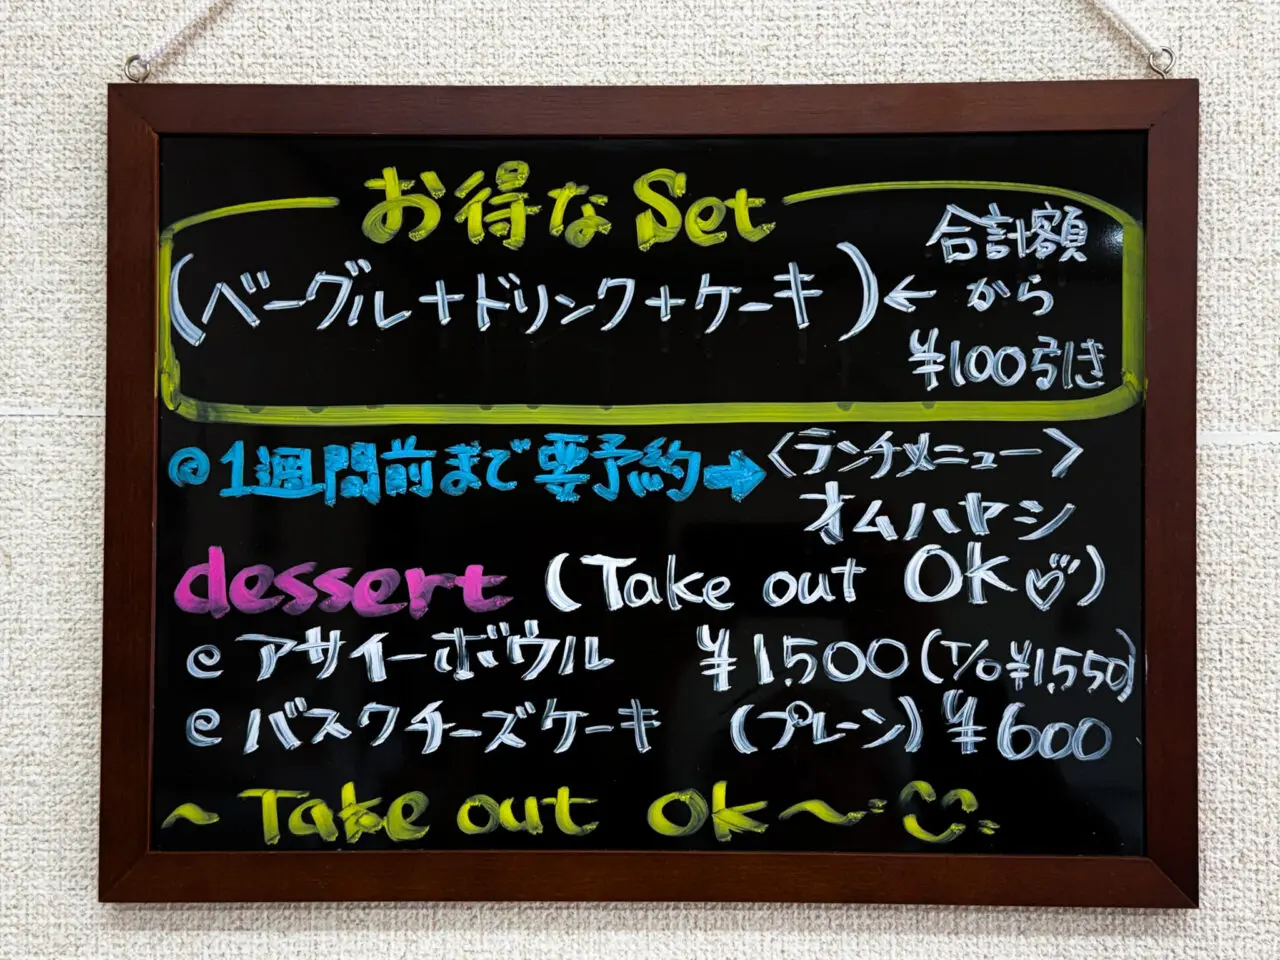 お得なSet
(ベーグル+ドリンク+ケーキ)← 合計額
から
¥100引き
@1週間前まで要予約➡〈ランチメニュー〉
オムハヤシ
dessert (Take out OK♡)
@アサイーボウル ¥1.500(T/O¥1.550)
@バスクチーズケーキ (プレーン)¥600
~Take out ok~